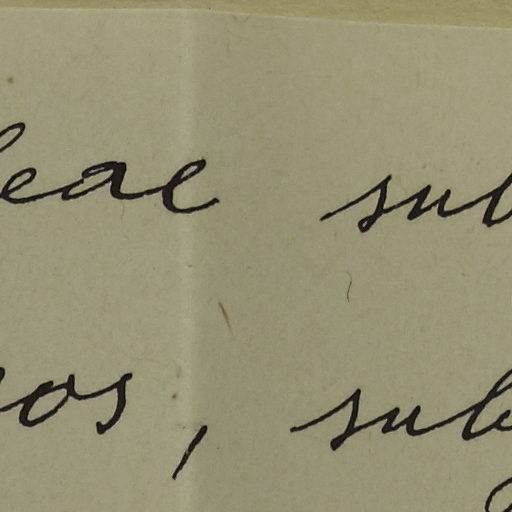 leae sub
sos, sub